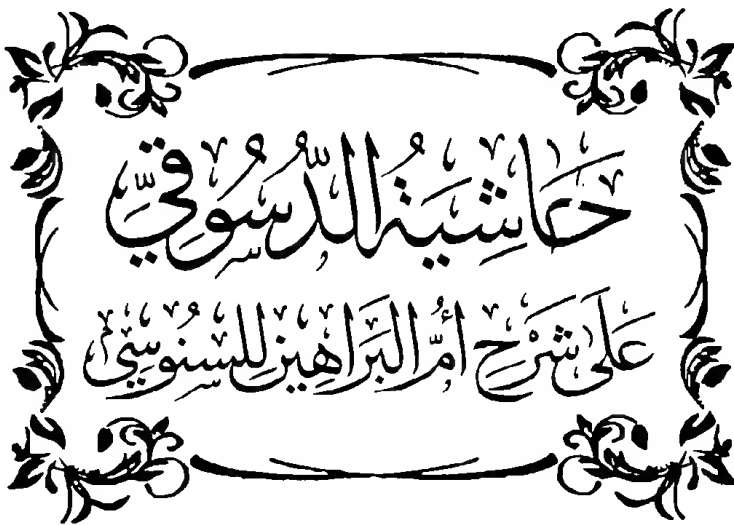 حَاشِيَةُ الدُّسُوقِيِّ
عَلَى شَرْحِ أُمِّ البَرَاهِينِ لِلسَّنُوسِيِّ